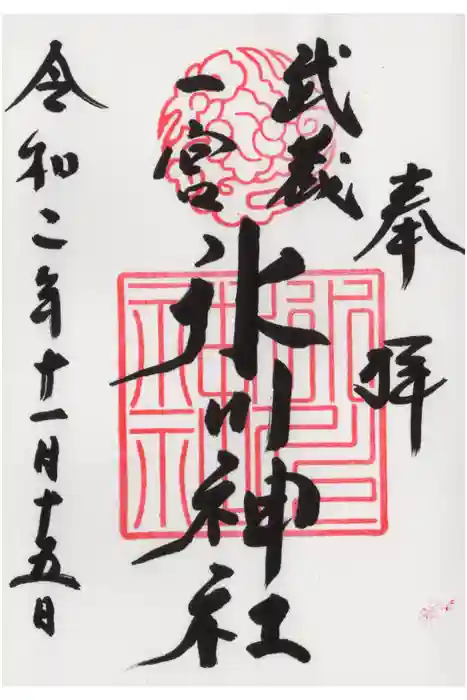 奉拝
武蔵
一宮
氷川神社
令和二年十一月十五日